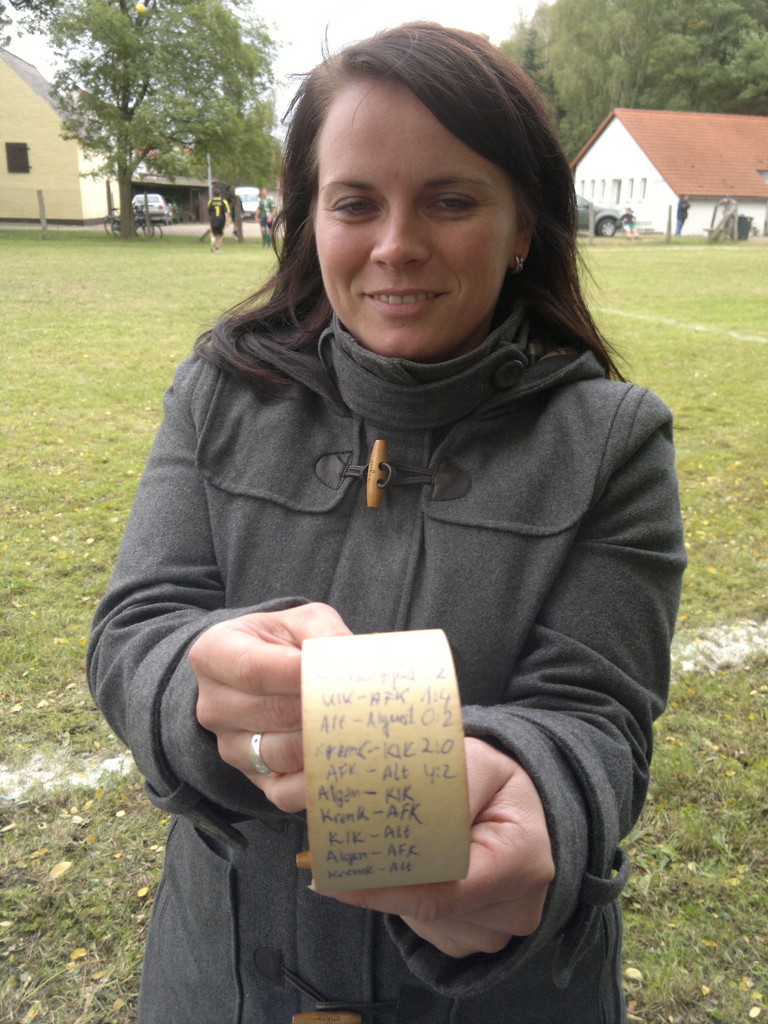 2
KIK - AFK 1:4
Alt - Algust 0:2
Krenk - KIK 2:0
AFK - Alt 4:2
Algen - KIK
Krenk - AFK
KIK - Alt
Algen - AFK
Krenk - Alt